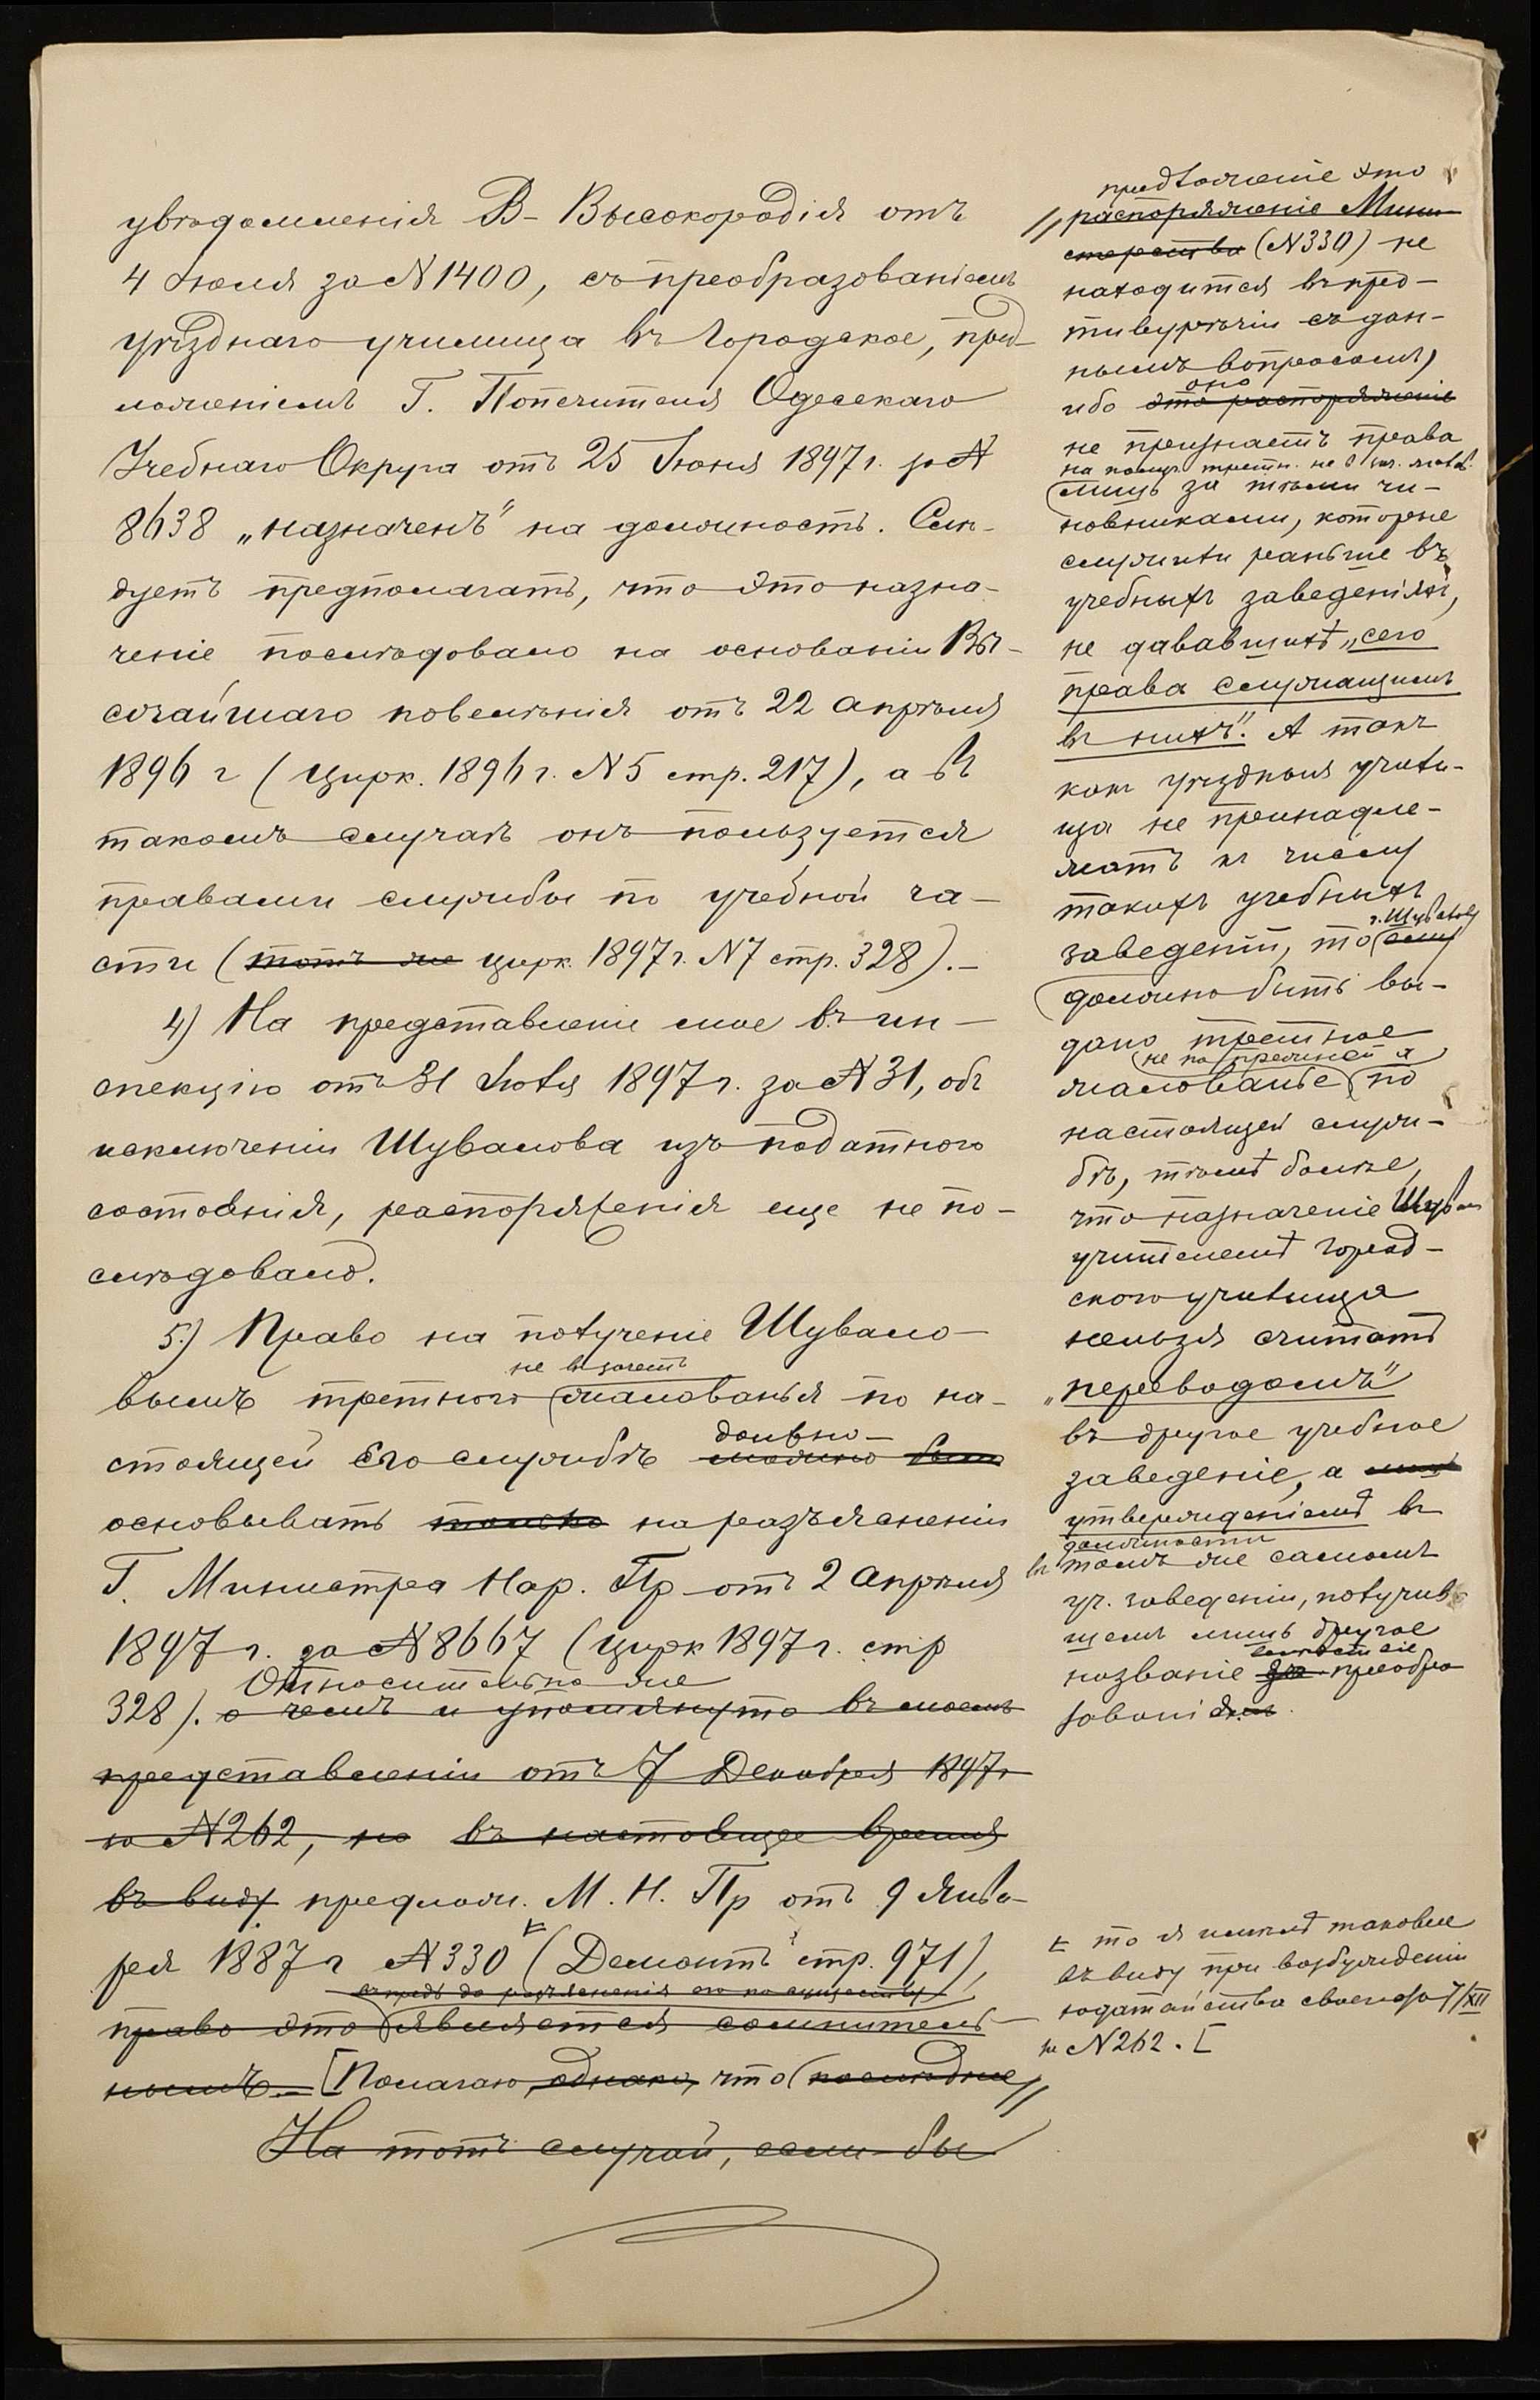 увѣдомленія В- Высокородія отъ
4 Іюля за №1400, съ преобразованіемъ
уѣзднаго училища въ Городское, пред-
ложеніемъ Г. Попечителя Одесскаго
Учебнаго Округа отъ 25 Іюня 1897 г. за №
8638 „назначенъ" на должность. Слѣ-
дуетъ предполагать, что это назна-
ченіе послѣдовало на основаніи Вы-
сочайшаго повелѣнія отъ 22 Апрѣля
1896 г (Цирк. 1896 г. №5 стр. 217), а въ
такомъ случаѣ онъ пользуется
правами службы по учебной ча-
сти (тотъ же цирк. 1897 г. №7 стр. 328).-
4) На представленіе мое въ ин-
спекцію отъ 31 Іюля 1897 г. за №31, объ
исключеніи Шувалова изъ податного
состоянія, распоряженія еще не по-
слѣдовало.
5) Право на полученіе Шувало-
не въ зачетъ
вымъ третного жалованья по на-
стоящей его службѣ можно было
должно
основывать только на разъясненіи
Г. Министра Нар. Пр отъ 2 Апрѣля
1897 г. за №8667 (Цирк 1897 г. стр
Относительно же
328). о чемъ и упомянуто въ моемъ
представленіи отъ 7 Декабря 1897 г
за №262, но въ настоящее время
въ виду предлож. М. Н. Пр отъ 9 Янва-
ря 1887 г №330 (Демонтъ стр. 971),
впредь до разъясненія его по существу
право это является сомнитель-
нымъ.- [Полагаю, однако, что (послѣднее
На тотъ случай, если бы
предложеніе это
распоряженіе Мини-
стерства (№330) не
находится въ про-
тиворѣчіи съ дан-
нымъ вопросомъ,
оно
ибо это распоряженіе
не признаетъ права
на получ. третн. не в зач. жалов.
лишь за тѣми чи-
новниками, которые
служили раньше въ
учебныхъ заведеніяхъ,
не дававшихъ „сего
права служащимъ
въ нихъ". А такъ
какъ уѣздныя учили-
ща не принадле-
жатъ къ числу
такихъ учебныхъ
г. Шувалову
заведеній, то ему
должно быть вы-
дано третное
не по прежней а
жалованье по
настоящей служ-
бѣ, тѣмъ болѣе,
что назначеніе Шувал
учителемъ город-
ского училища
нельзя считать
„переводомъ"
въ другое учебное
заведеніе, а
утвержденіемъ въ
должности
въ томъ же самомъ
уч. заведеніи, получив-
шемъ лишь другое
вслѣдствіе
названіе преобра-
зованія
то я имѣлъ таковое
въ виду при возбужденіи
ходатайства своего за 7/XII
за №262. [